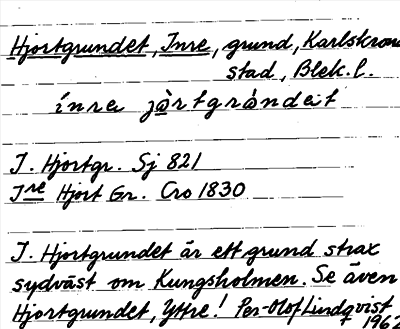 Hjortgrundet, Inre, grund, Karlskrona
stad, Blek. l.
inre jòrtgrúndet
I. Hjortgr. Sj 821
Ire Hjort Gr. Cro 1830
I. Hjortgrundet är ett grund strax
sydväst om Kungsholmen. Se även
Hjortgrundet, Yttre! Per-Olof Lindqvist
1962